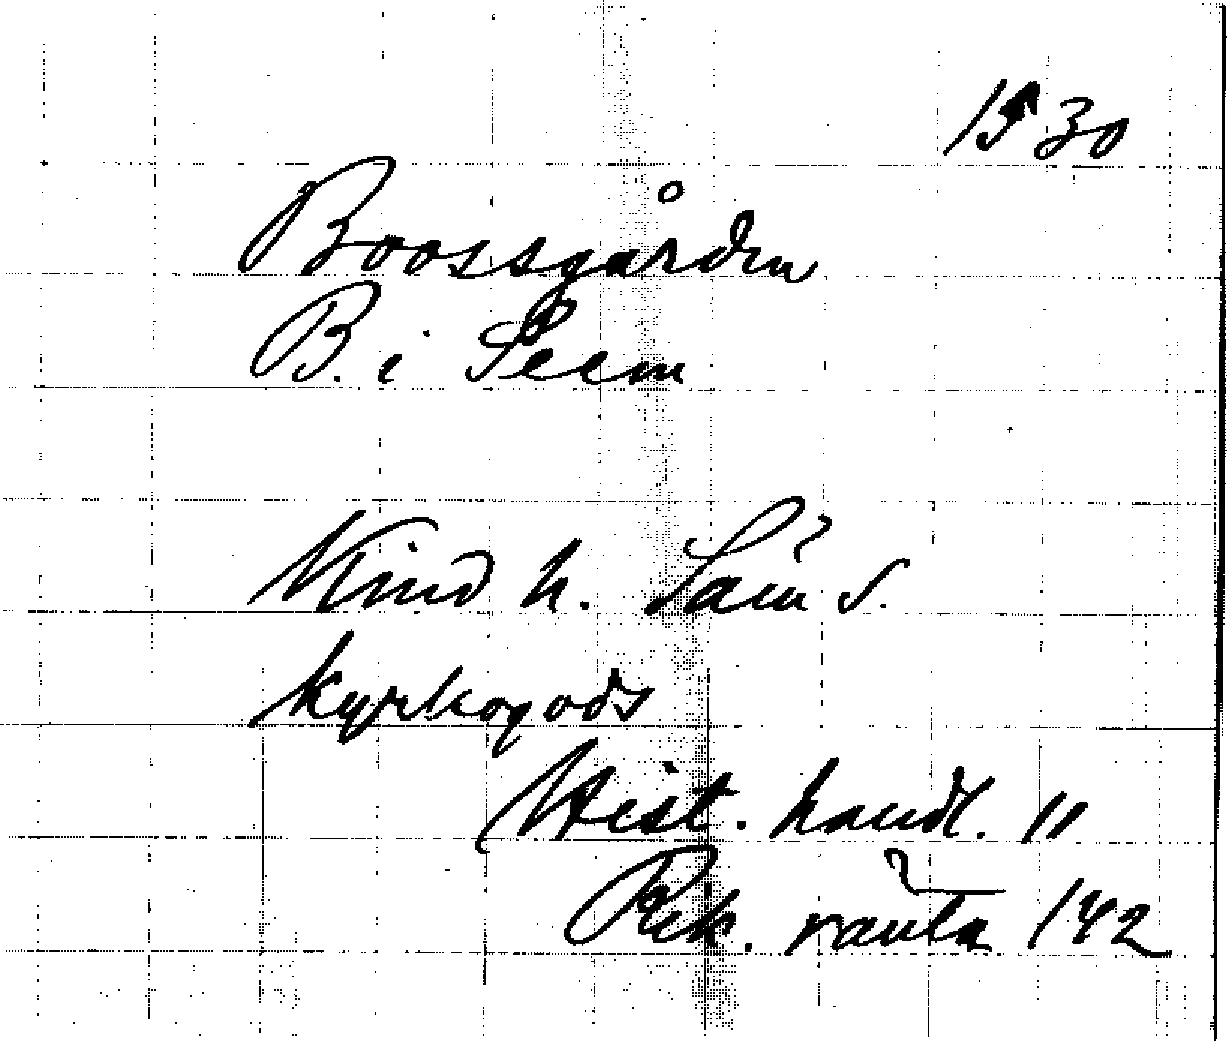 1530
Boossgården
B. i Seem
Kind h. Säm ? s.
kyrkogods
Hist. handl. 11
ränta 142